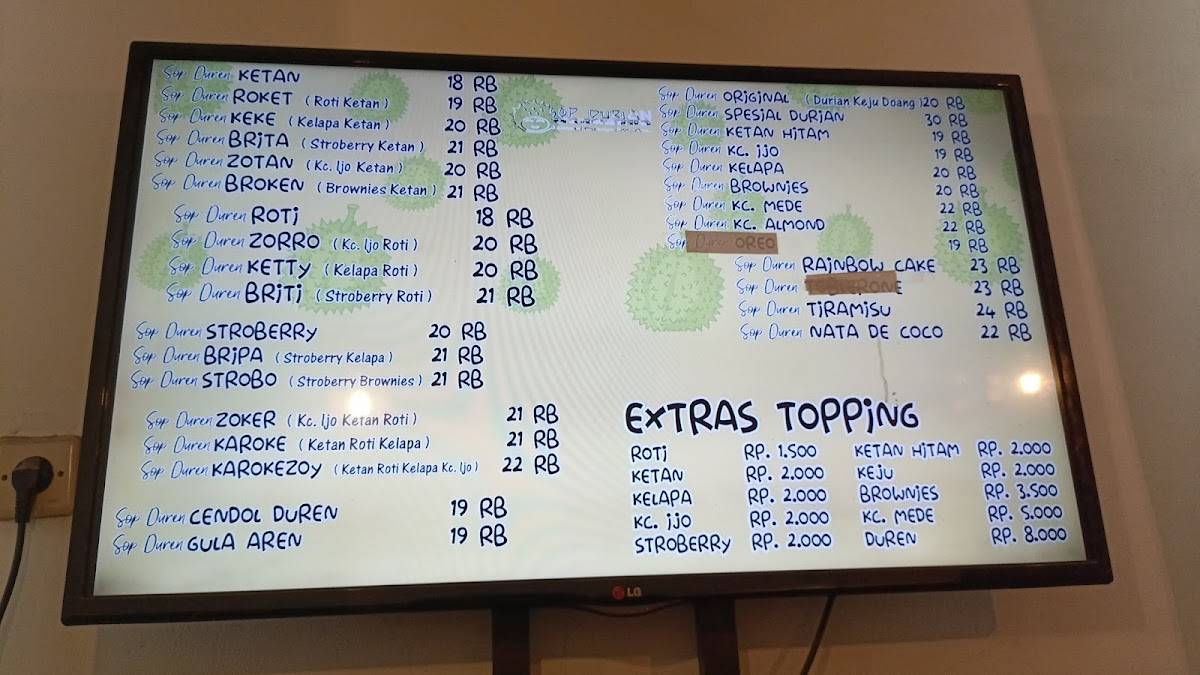 Sop Duren KETAN 18 RB
Sop Duren ROKET (Roti Ketan) 19 RB
Sop Duren KEKE (Kelapa Ketan) 20 RB
Sop Duren BRITA (Stroberry Ketan) 21 RB
Sop Duren ZOTAN (Kc. Ijo Ketan) 20 RB
Sop Duren BROKEN (Brownies Ketan) 21 RB
Sop Duren ROTI 18 RB
Sop Duren ZORRO (Kc. Ijo Roti) 20 RB
Sop Duren KETTY (Kelapa Roti) 20 RB
Sop Duren BRITI (Stroberry Roti) 21 RB
Sop Duren STROBERRY 20 RB
Sop Duren BRIPA (Stroberry Kelapa) 21 RB
Sop Duren STROBO (Stroberry Brownies) 21 RB
Sop Duren ZOKER (Kc. Ijo Ketan Roti) 21 RB
Sop Duren KAROKE (Ketan Roti Kelapa) 21 RB
Sop Duren KAROKEZOY (Ketan Roti Kelapa Kc. Ijo) 22 RB
Sop Duren CENDOL DUREN 19 RB
Sop Duren GULA AREN 19 RB
SOP DURIAN
Sop Duren ORIGINAL (Durian Keju Doang) 20 RB
Sop Duren SPESIAL DURIAN 30 RB
Sop Duren KETAN HITAM 19 RB
Sop Duren KC. IJO 19 RB
Sop Duren KELAPA 20 RB
Sop Duren BROWNIES 20 RB
Sop Duren KC. MEDE 22 RB
Sop Duren KC. ALMOND 22 RB
Sop Duren OREO 19 RB
Sop Duren RAINBOW CAKE 23 RB
Sop Duren 23 RB
Sop Duren TIRAMISU 24 RB
Sop Duren NATA DE COCO 22 RB
EXTRAS TOPPING
ROTI RP. 1.500 KETAN HITAM RP. 2.000
KETAN RP. 2.000 KEJU RP. 2.000
KELAPA RP. 2.000 BROWNIES RP. 3.500
KC. IJO RP. 2.000 KC. MEDE RP. 5.000
STROBERRY RP. 2.000 DUREN RP. 8.000
LG